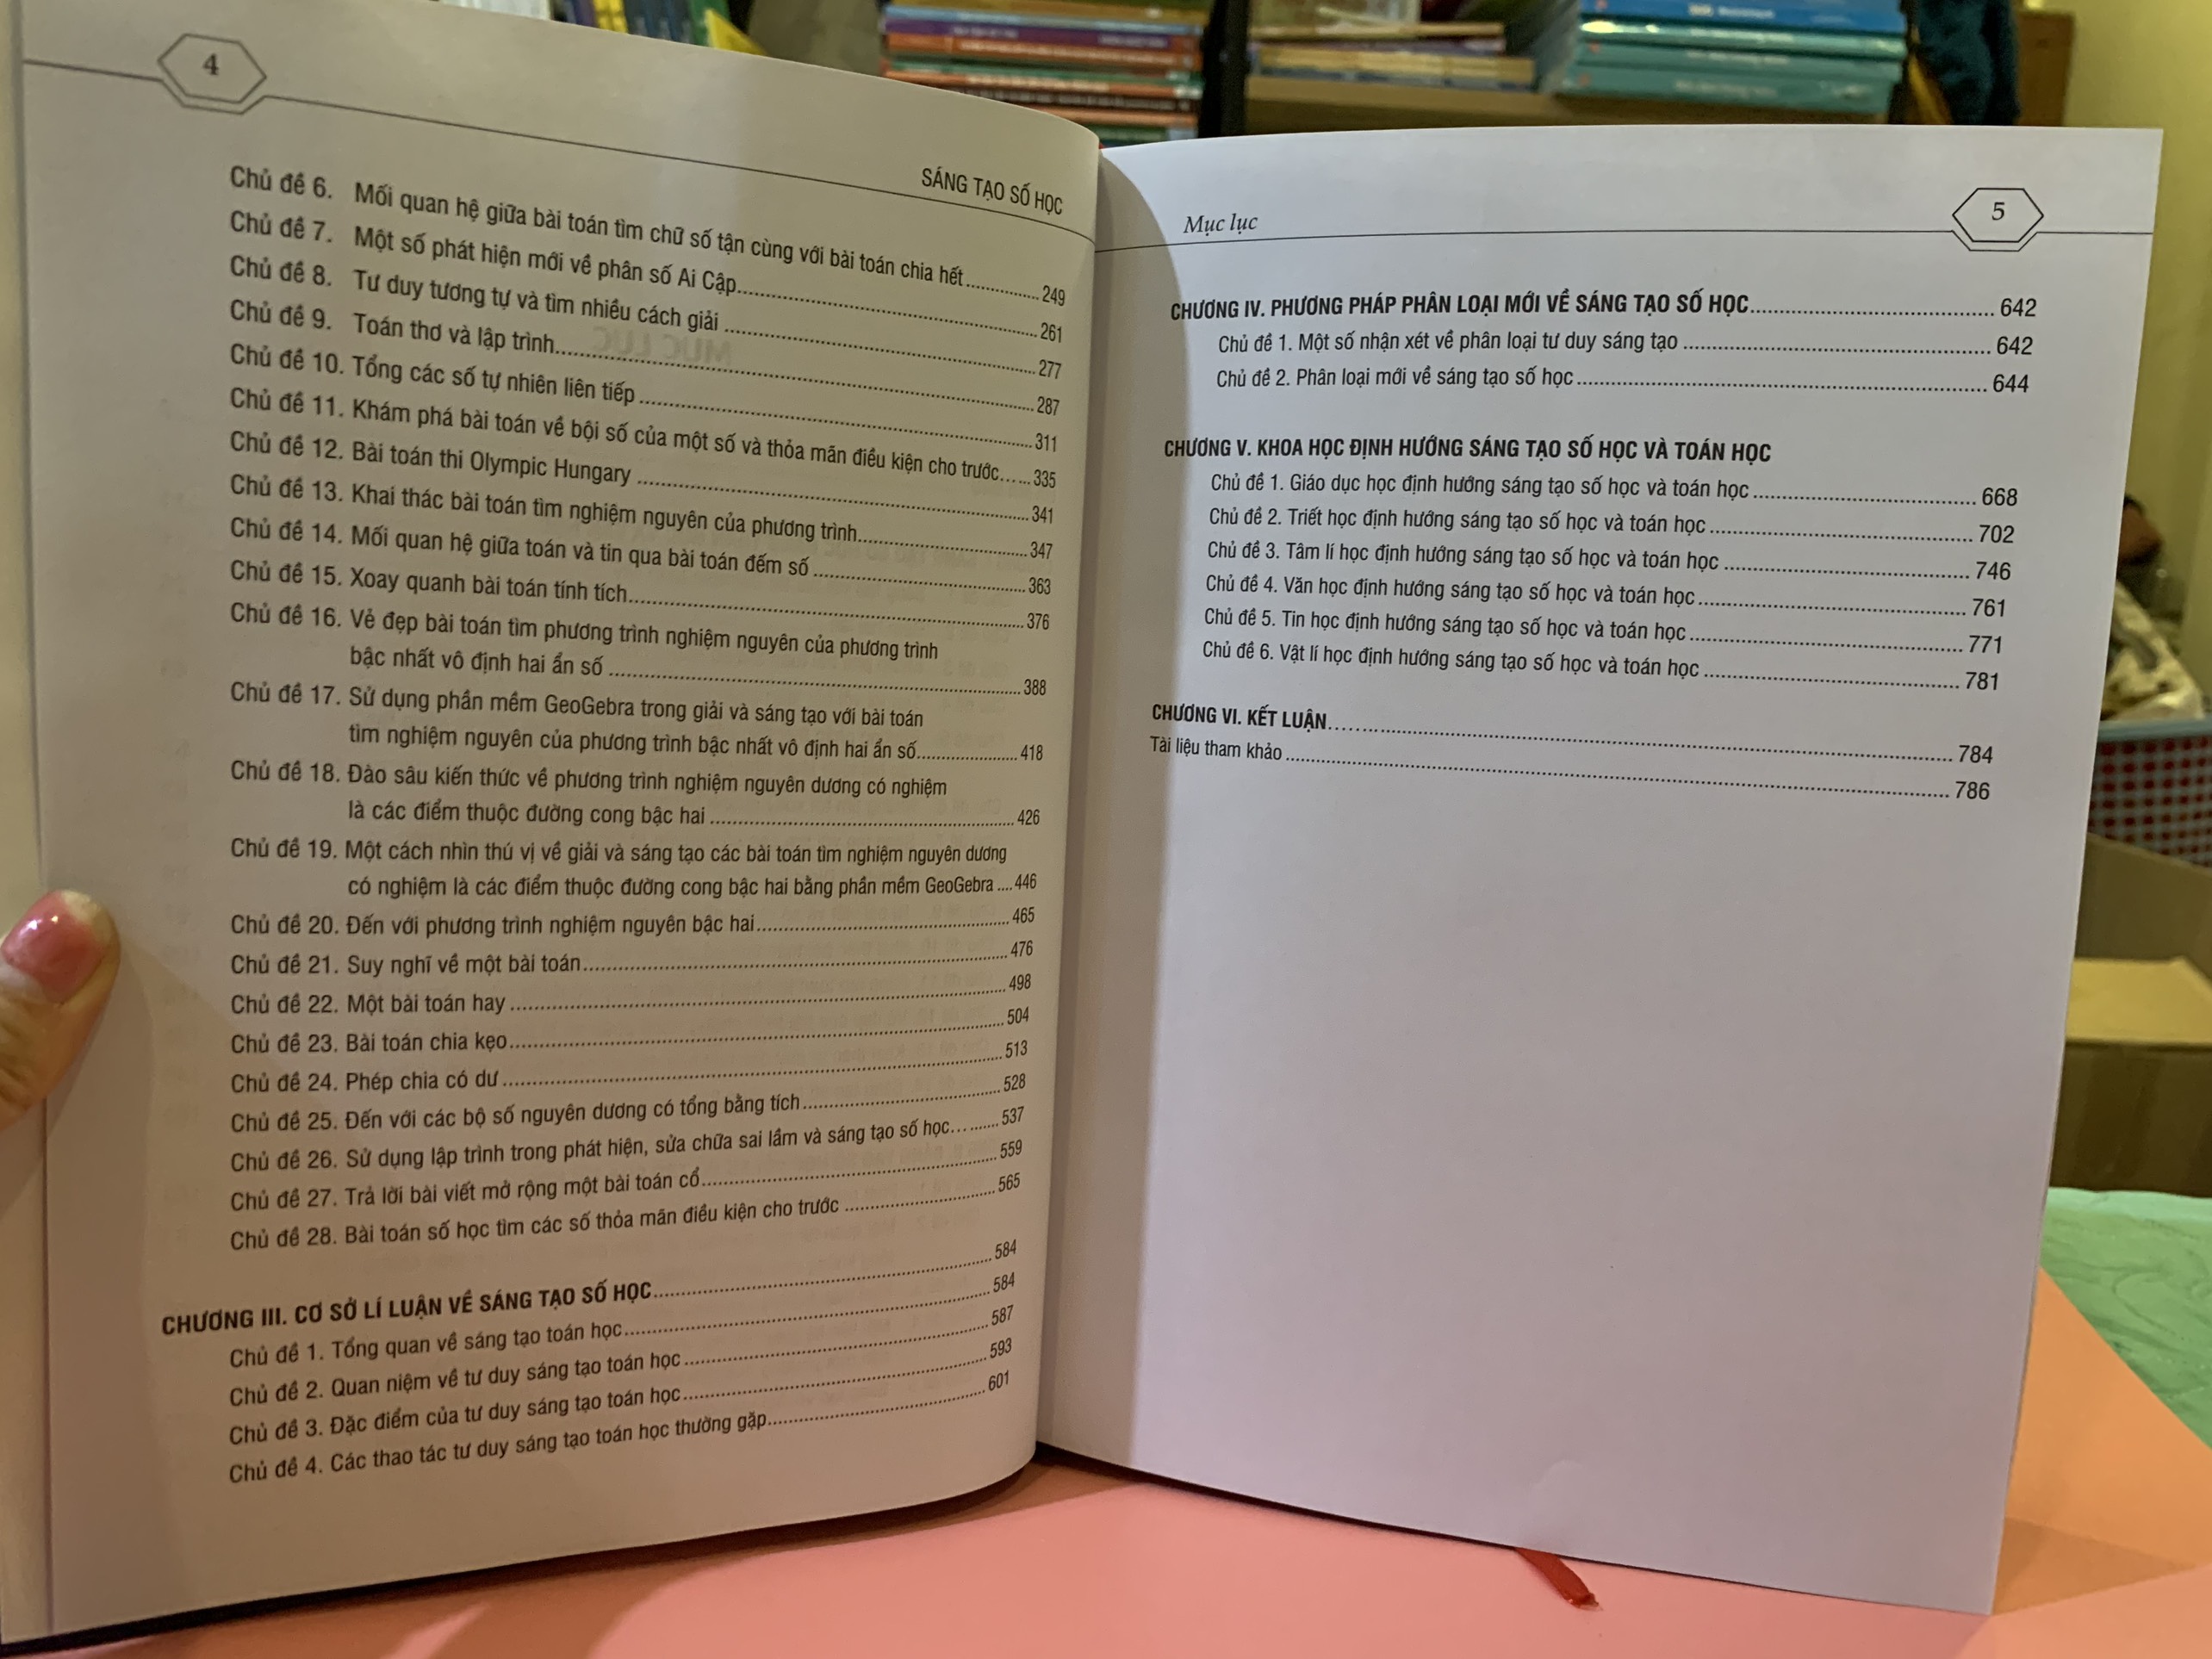 4
SÁNG TẠO SỐ HỌC
Chủ đề 6. Mối quan hệ giữa bài toán tìm chữ số tận cùng với bài toán chia hết.............. 249
Chủ đề 7. Một số phát hiện mới về phân số Ai Cập.............. 261
Chủ đề 8. Tư duy tương tự và tìm nhiều cách giải .............. 277
Chủ đề 9. Toán thơ và lập trình.............. 287
Chủ đề 10. Tổng các số tự nhiên liên tiếp .............. 311
Chủ đề 11. Khám phá bài toán về bội số của một số và thỏa mãn điều kiện cho trước...... 335
Chủ đề 12. Bài toán thi Olympic Hungary .............. 341
Chủ đề 13. Khai thác bài toán tìm nghiệm nguyên của phương trình.............. 347
Chủ đề 14. Mối quan hệ giữa toán và tin qua bài toán đếm số .............. 363
Chủ đề 15. Xoay quanh bài toán tính tích.............. 376
Chủ đề 16. Vẻ đẹp bài toán tìm phương trình nghiệm nguyên của phương trình
bậc nhất vô định hai ẩn số .............. 388
Chủ đề 17. Sử dụng phần mềm GeoGebra trong giải và sáng tạo với bài toán
tìm nghiệm nguyên của phương trình bậc nhất vô định hai ẩn số.............. 418
Chủ đề 18. Đào sâu kiến thức về phương trình nghiệm nguyên dương có nghiệm
là các điểm thuộc đường cong bậc hai .............. 426
Chủ đề 19. Một cách nhìn thú vị về giải và sáng tạo các bài toán tìm nghiệm nguyên dương
có nghiệm là các điểm thuộc đường cong bậc hai bằng phần mềm GeoGebra .... 446
Chủ đề 20. Đến với phương trình nghiệm nguyên bậc hai.............. 465
Chủ đề 21. Suy nghĩ về một bài toán.............. 476
Chủ đề 22. Một bài toán hay .............. 498
Chủ đề 23. Bài toán chia kẹo.............. 504
Chủ đề 24. Phép chia có dư .............. 513
Chủ đề 25. Đến với các bộ số nguyên dương có tổng bằng tích.............. 528
Chủ đề 26. Sử dụng lập trình trong phát hiện, sửa chữa sai lầm và sáng tạo số học.......... 537
Chủ đề 27. Trả lời bài viết mở rộng một bài toán cổ.............. 559
Chủ đề 28. Bài toán số học tìm các số thỏa mãn điều kiện cho trước .............. 565
CHƯƠNG III. CƠ SỞ LÍ LUẬN VỀ SÁNG TẠO SỐ HỌC.............. 584
Chủ đề 1. Tổng quan về sáng tạo toán học.............. 584
Chủ đề 2. Quan niệm về tư duy sáng tạo toán học .............. 587
Chủ đề 3. Đặc điểm của tư duy sáng tạo toán học.............. 593
Chủ đề 4. Các thao tác tư duy sáng tạo toán học thường gặp.............. 601
Mục lục
5
CHƯƠNG IV. PHƯƠNG PHÁP PHÂN LOẠI MỚI VỀ SÁNG TẠO SỐ HỌC.............. 642
Chủ đề 1. Một số nhận xét về phân loại tư duy sáng tạo .............. 642
Chủ đề 2. Phân loại mới về sáng tạo số học.............. 644
CHƯƠNG V. KHOA HỌC ĐỊNH HƯỚNG SÁNG TẠO SỐ HỌC VÀ TOÁN HỌC
Chủ đề 1. Giáo dục học định hướng sáng tạo số học và toán học .............. 668
Chủ đề 2. Triết học định hướng sáng tạo số học và toán học .............. 702
Chủ đề 3. Tâm lí học định hướng sáng tạo số học và toán học .............. 746
Chủ đề 4. Văn học định hướng sáng tạo số học và toán học.............. 761
Chủ đề 5. Tin học định hướng sáng tạo số học và toán học .............. 771
Chủ đề 6. Vật lí học định hướng sáng tạo số học và toán học .............. 781
CHƯƠNG VI. KẾT LUẬN.............. 784
Tài liệu tham khảo .............. 786